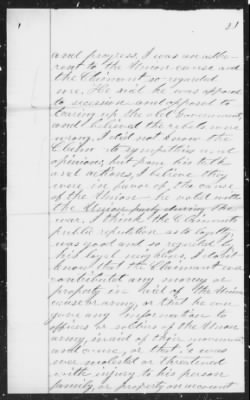 and progress, I was an adhe-
rent to the Union cause and
the Claimant so regarded
me. He said he was opposed
to secession and opposed to
tearing up the old Government,
and believed the rebels were
wrong. I did not know the
Claim to sympathies and
opinions, but from his talk
and actions, I believe they
were in favor of the cause
of the Union he voted with
the Union party during the
war, I think the Claimants
public reputation as to loyalty
was good and so regarded by
his loyal neighbors, I don't
know that the Claimant ever
contributed any money or
property in aid of the Union
cause or army, or that he ever
gave any information to
officers or soldiers of the Union
army, in aid of their movements
and , or that he was
ever molested or threatened
with injury to his person
family, or property on account